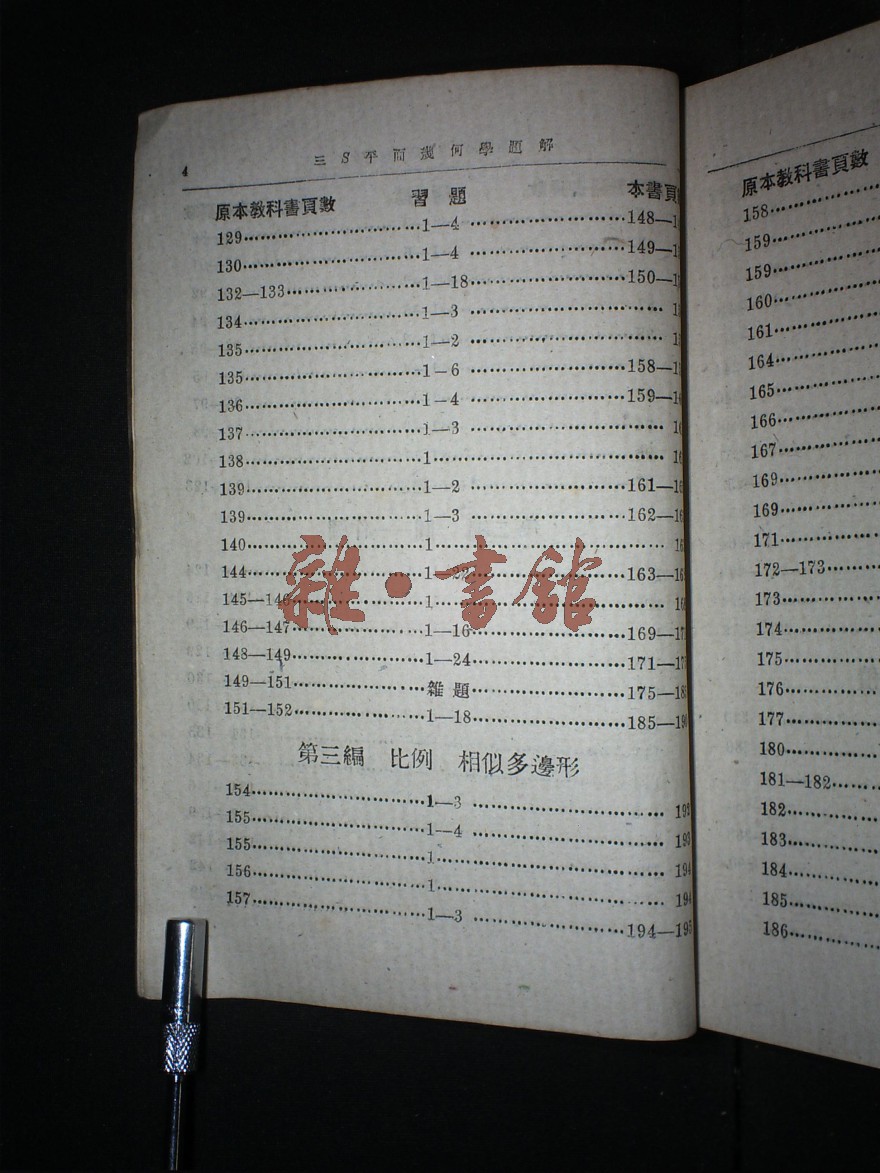 4 三S平面幾何學題解
原本教科書頁數 習題 本書頁
129 1—4 148—1
130 1—4 149—1
132—133 1—18 150—1
134 1—3
135 1—2
135 1—6 158—1
136 1—4 159—1
137 1—3
138 1
139 1—2 161—16
139 1—3 162—16
140 1 16
144 1—22 163—16
145—146 1
146—147 1—16 169—17
148—149 1—24 171—17
149—151 雜題 175—18
151—152 1—18 185—19
第三編 比例 相似多邊形
154 1—3 192
155 1—4 193
155 1 194
156 1 194
157 1—3 194—195
雜·書館
原本教科書頁數
158
159
159
160
161
164
165
166
167
169
169
171
172—173
173
174
175
176
177
180
181—182
182
183
184
185
186